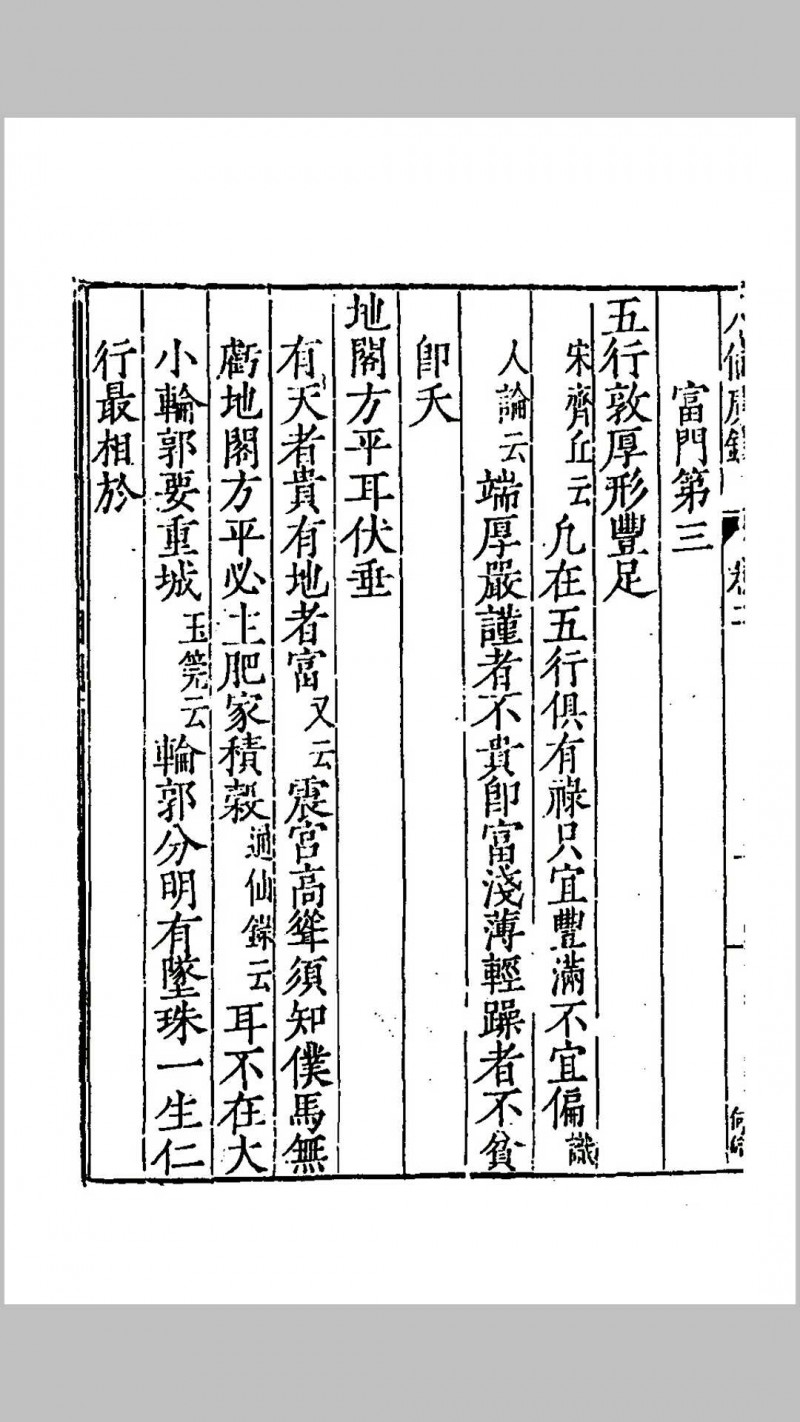 富門第三
五行敦厚形豐足
宋齊丘云凢在五行俱有祿只宜豐滿不宜偏識
人論云端厚嚴謹者不貴卽富淺薄輕躁者不貧
卽夭
地閣方平耳伏垂
有天者貴有地者富又云震宮高聳須知僕馬無
虧地閣方平必主肥家積穀通仙錄云耳不在大
小輪郭要重城玉筦云輪郭分明有墜珠一生仁
行最相於